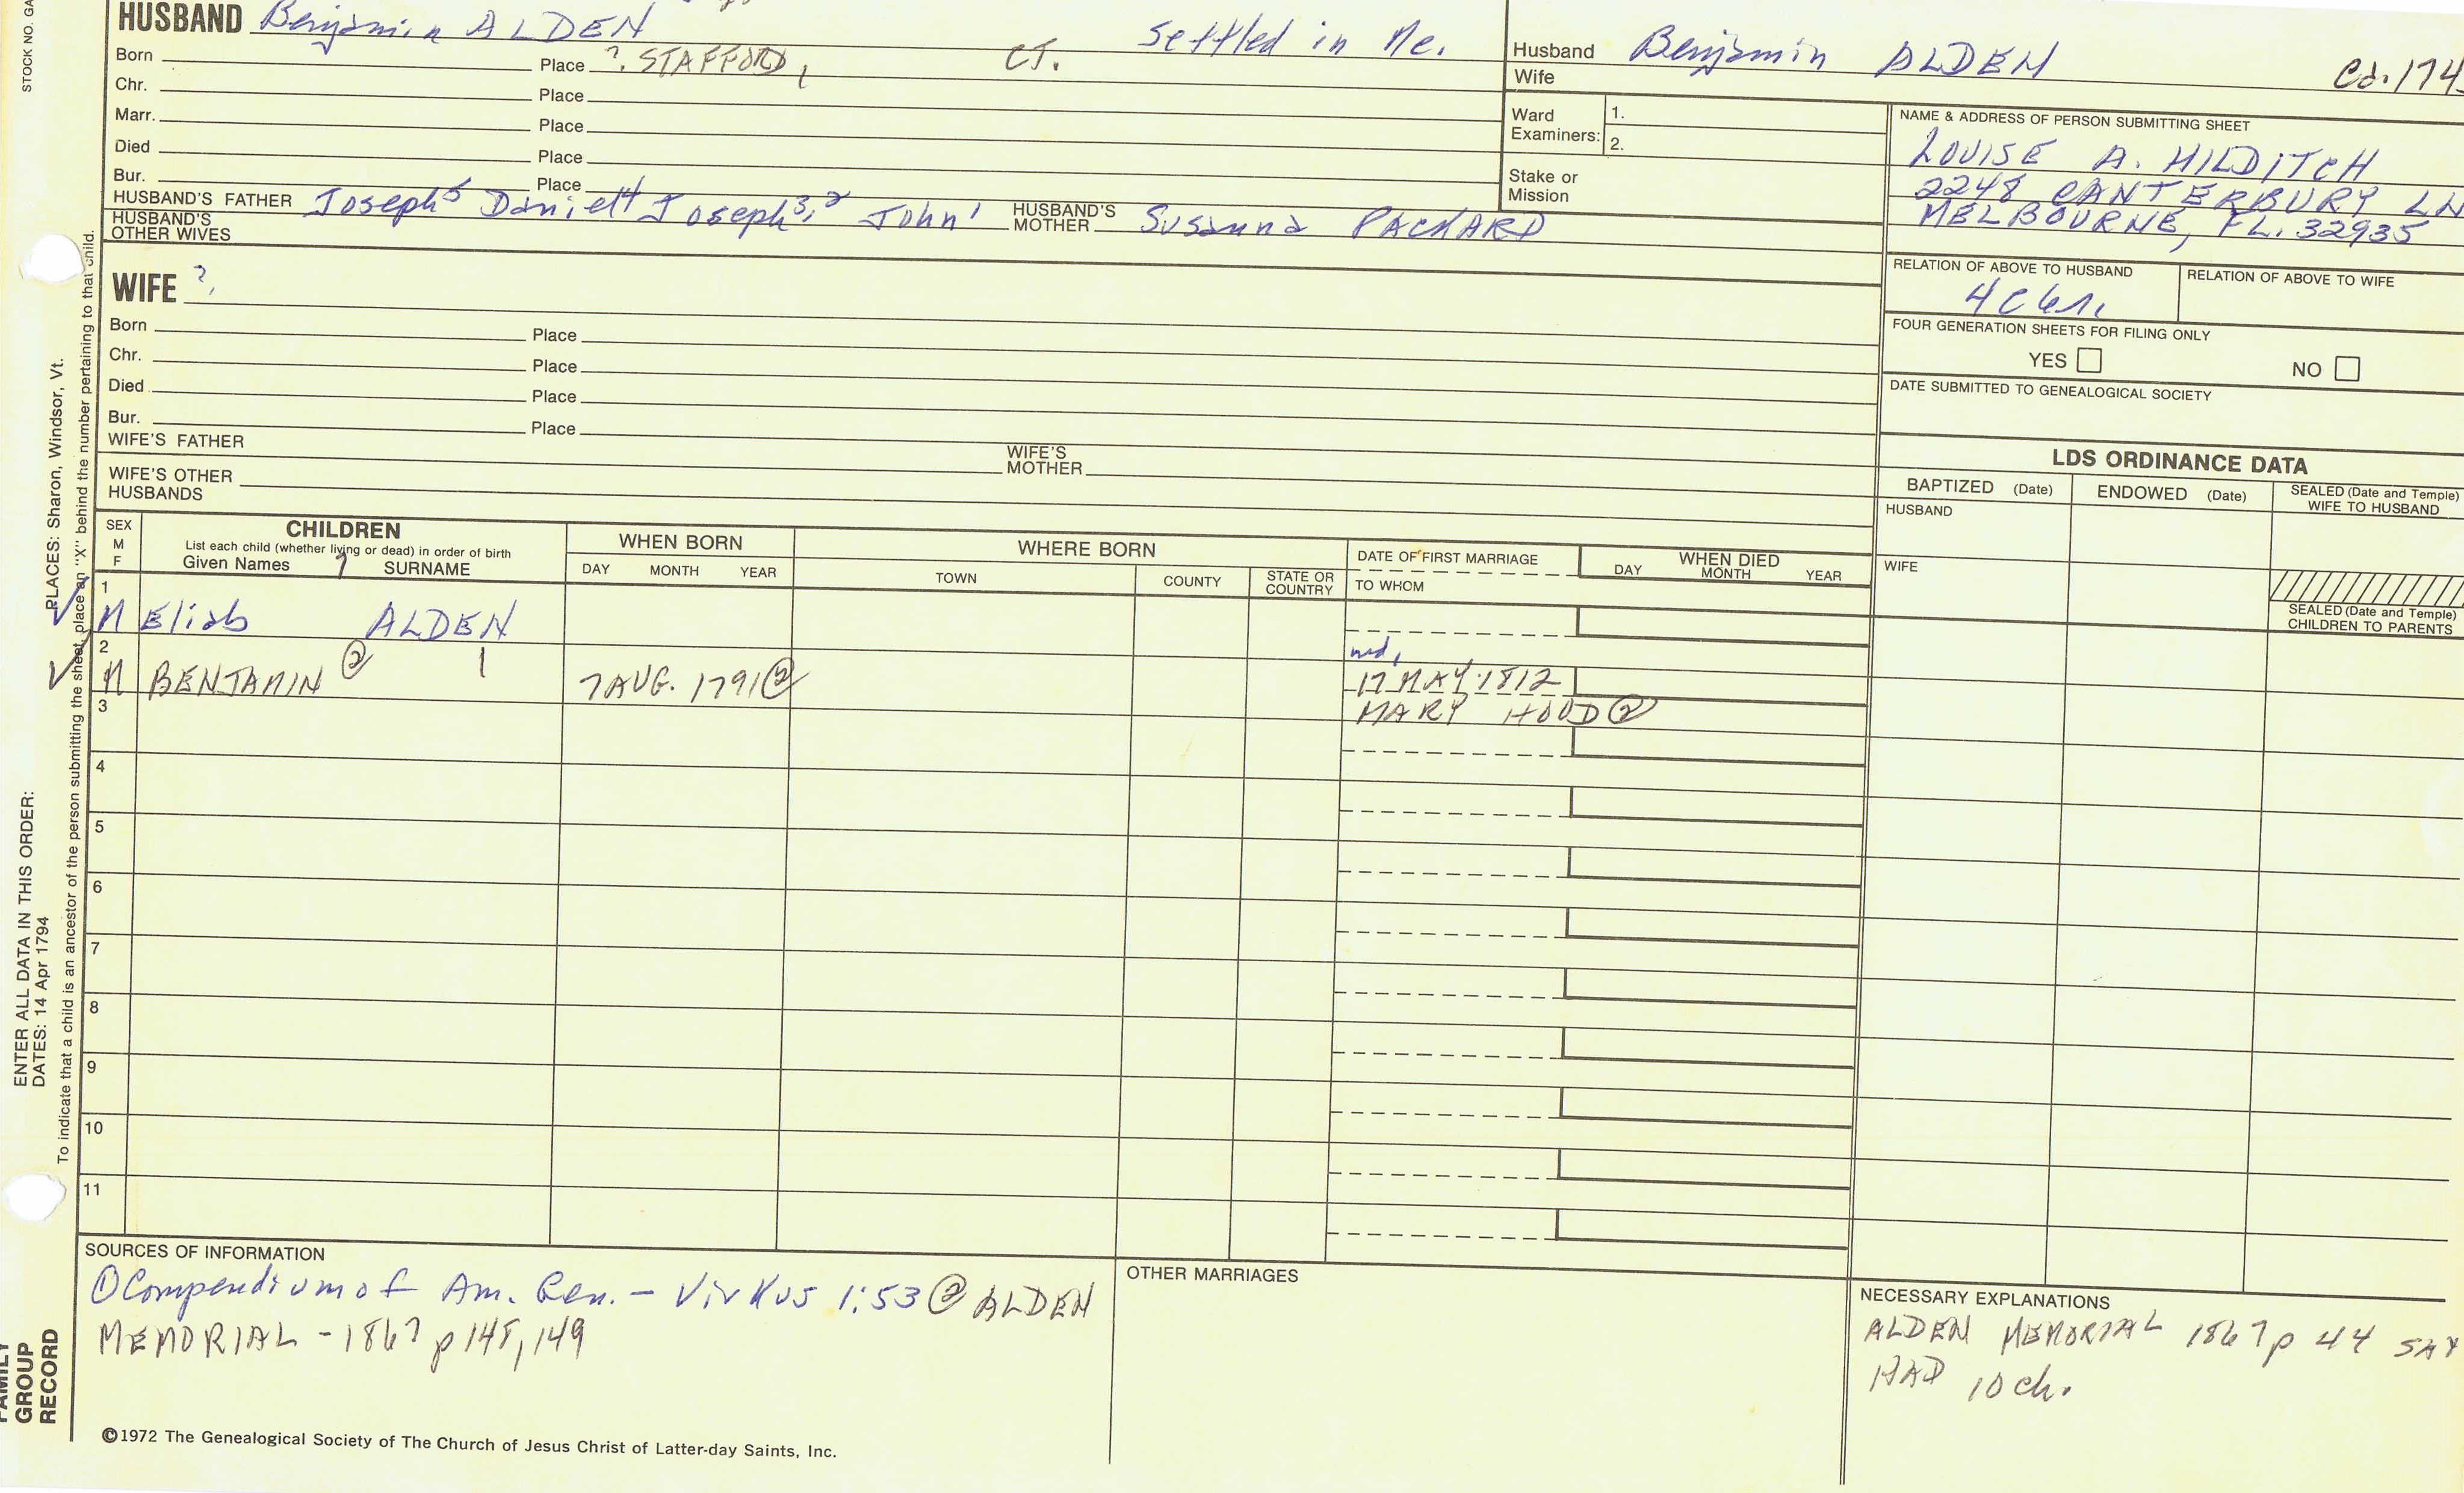 STOCK NO. GA
HUSBAND Benjamin ALDEN
Settled in Me.
Born Place ?. STAFFORD, CT.
Chr. Place
Marr. Place
Died Place
Bur. Place
HUSBAND'S FATHER Joseph⁵ Daniel⁴ Joseph³,² John¹ HUSBAND'S MOTHER Susanna PACKARD
HUSBAND'S OTHER WIVES
WIFE ?,
Born Place
Chr. Place
Died Place
Bur. Place
WIFE'S FATHER WIFE'S MOTHER
WIFE'S OTHER HUSBANDS
Husband Benjamin ALDEN
Wife
Ward Examiners: 1.
2.
Stake or Mission
NAME & ADDRESS OF PERSON SUBMITTING SHEET
LOUISE A. HILDITCH
2248 CANTERBURY LN
MELBOURNE, FL. 32935
RELATION OF ABOVE TO HUSBAND RELATION OF ABOVE TO WIFE
FOUR GENERATION SHEETS FOR FILING ONLY
YES NO
DATE SUBMITTED TO GENEALOGICAL SOCIETY
LDS ORDINANCE DATA
BAPTIZED (Date) ENDOWED (Date) SEALED (Date and Temple) WIFE TO HUSBAND
HUSBAND
WIFE
SEALED (Date and Temple) CHILDREN TO PARENTS
SEX M F
CHILDREN
List each child (whether living or dead) in order of birth
Given Names ? SURNAME
WHEN BORN
DAY MONTH YEAR
WHERE BORN
TOWN COUNTY STATE OR COUNTRY
DATE OF FIRST MARRIAGE
TO WHOM
WHEN DIED
DAY MONTH YEAR
1
M Eliab ALDEN
2
md,
M BENJAMIN ② 7 AUG. 1791② 17 MAY 1812
3
MARY HOOD②
4
5
6
7
8
9
10
11
SOURCES OF INFORMATION
①Compendium of Am. Gen. – Virkus 1:53 ② ALDEN
MEMORIAL - 1867 p 148, 149
OTHER MARRIAGES
NECESSARY EXPLANATIONS
ALDEN MEMORIAL 1867 p 44 SAY
HAD 10 ch.
©1972 The Genealogical Society of The Church of Jesus Christ of Latter-day Saints, Inc.
PLACES: Sharon, Windsor, Vt.
To indicate that a child is an ancestor of the person submitting the sheet, place an "X" behind the number pertaining to that child.
ENTER ALL DATA IN THIS ORDER:
DATES: 14 Apr 1794
FAMILY
GROUP
RECORD